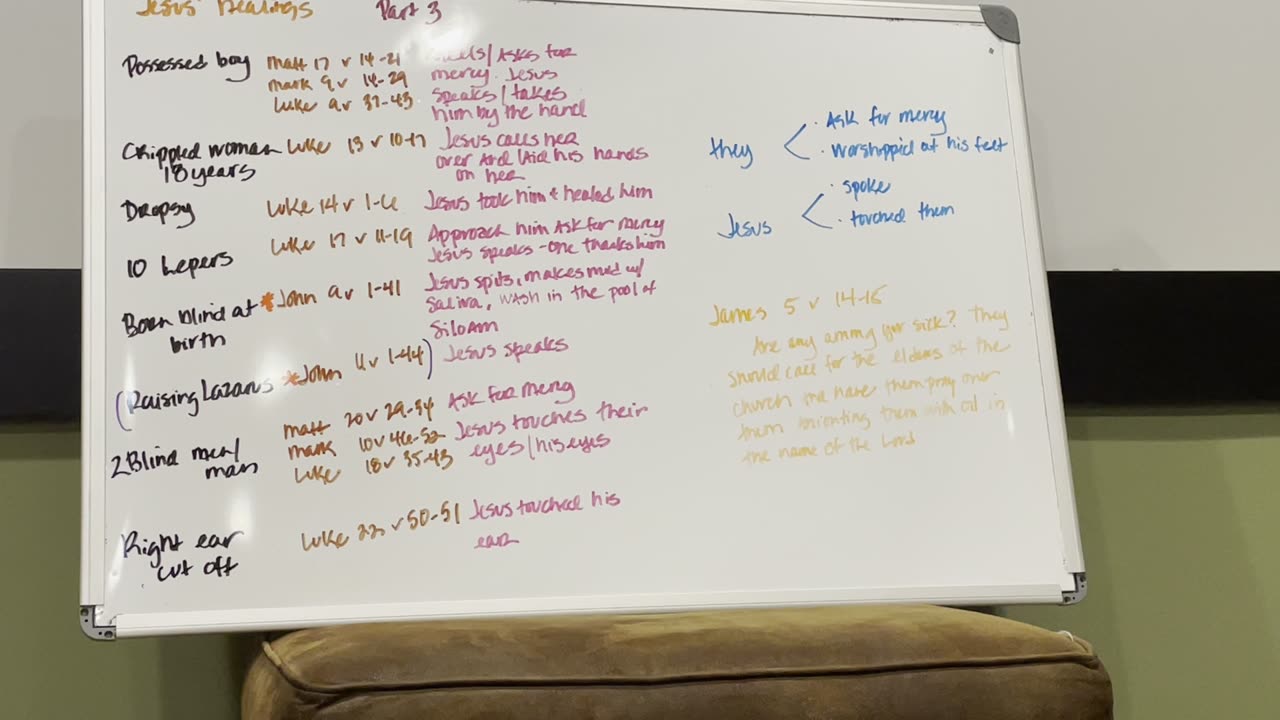 Jesus' Healings Part 3
Possessed boy
matt 17 v 14-21
mark 9 v 14-29
Luke 9 v 37-43
Asks for
mercy. Jesus
speaks/takes
him by the hand
Crippled woman
18 years
Luke 13 v 10-17
Jesus calls her
over and laid his hands
on her
Dropsy
Luke 14 v 1-6
Jesus took him + healed him
10 Lepers
Luke 17 v 11-19
Approach him Ask for mercy
Jesus speaks - one thanks him
Born blind at
birth
*John 9 v 1-41
Jesus spits, makes mud w/
saliva, wash in the pool of
Siloam
(Raising Lazarus *John 11 v 1-44)
Jesus speaks
2 Blind men/
man
matt 20 v 29-34
mark 10 v 46-52
Luke 18 v 35-43
Ask for mercy
Jesus touches their
eyes/his eyes
Right ear
cut off
Luke 22 v 50-51
Jesus touched his
ear
they
· Ask for mercy
· worshippid at his feet
Jesus
· spoke
· touched them
James 5 v 14-15
Are any among your sick? They
should call for the elders of the
church and have them pray over
them anionting them with oil in
the name of the Lord